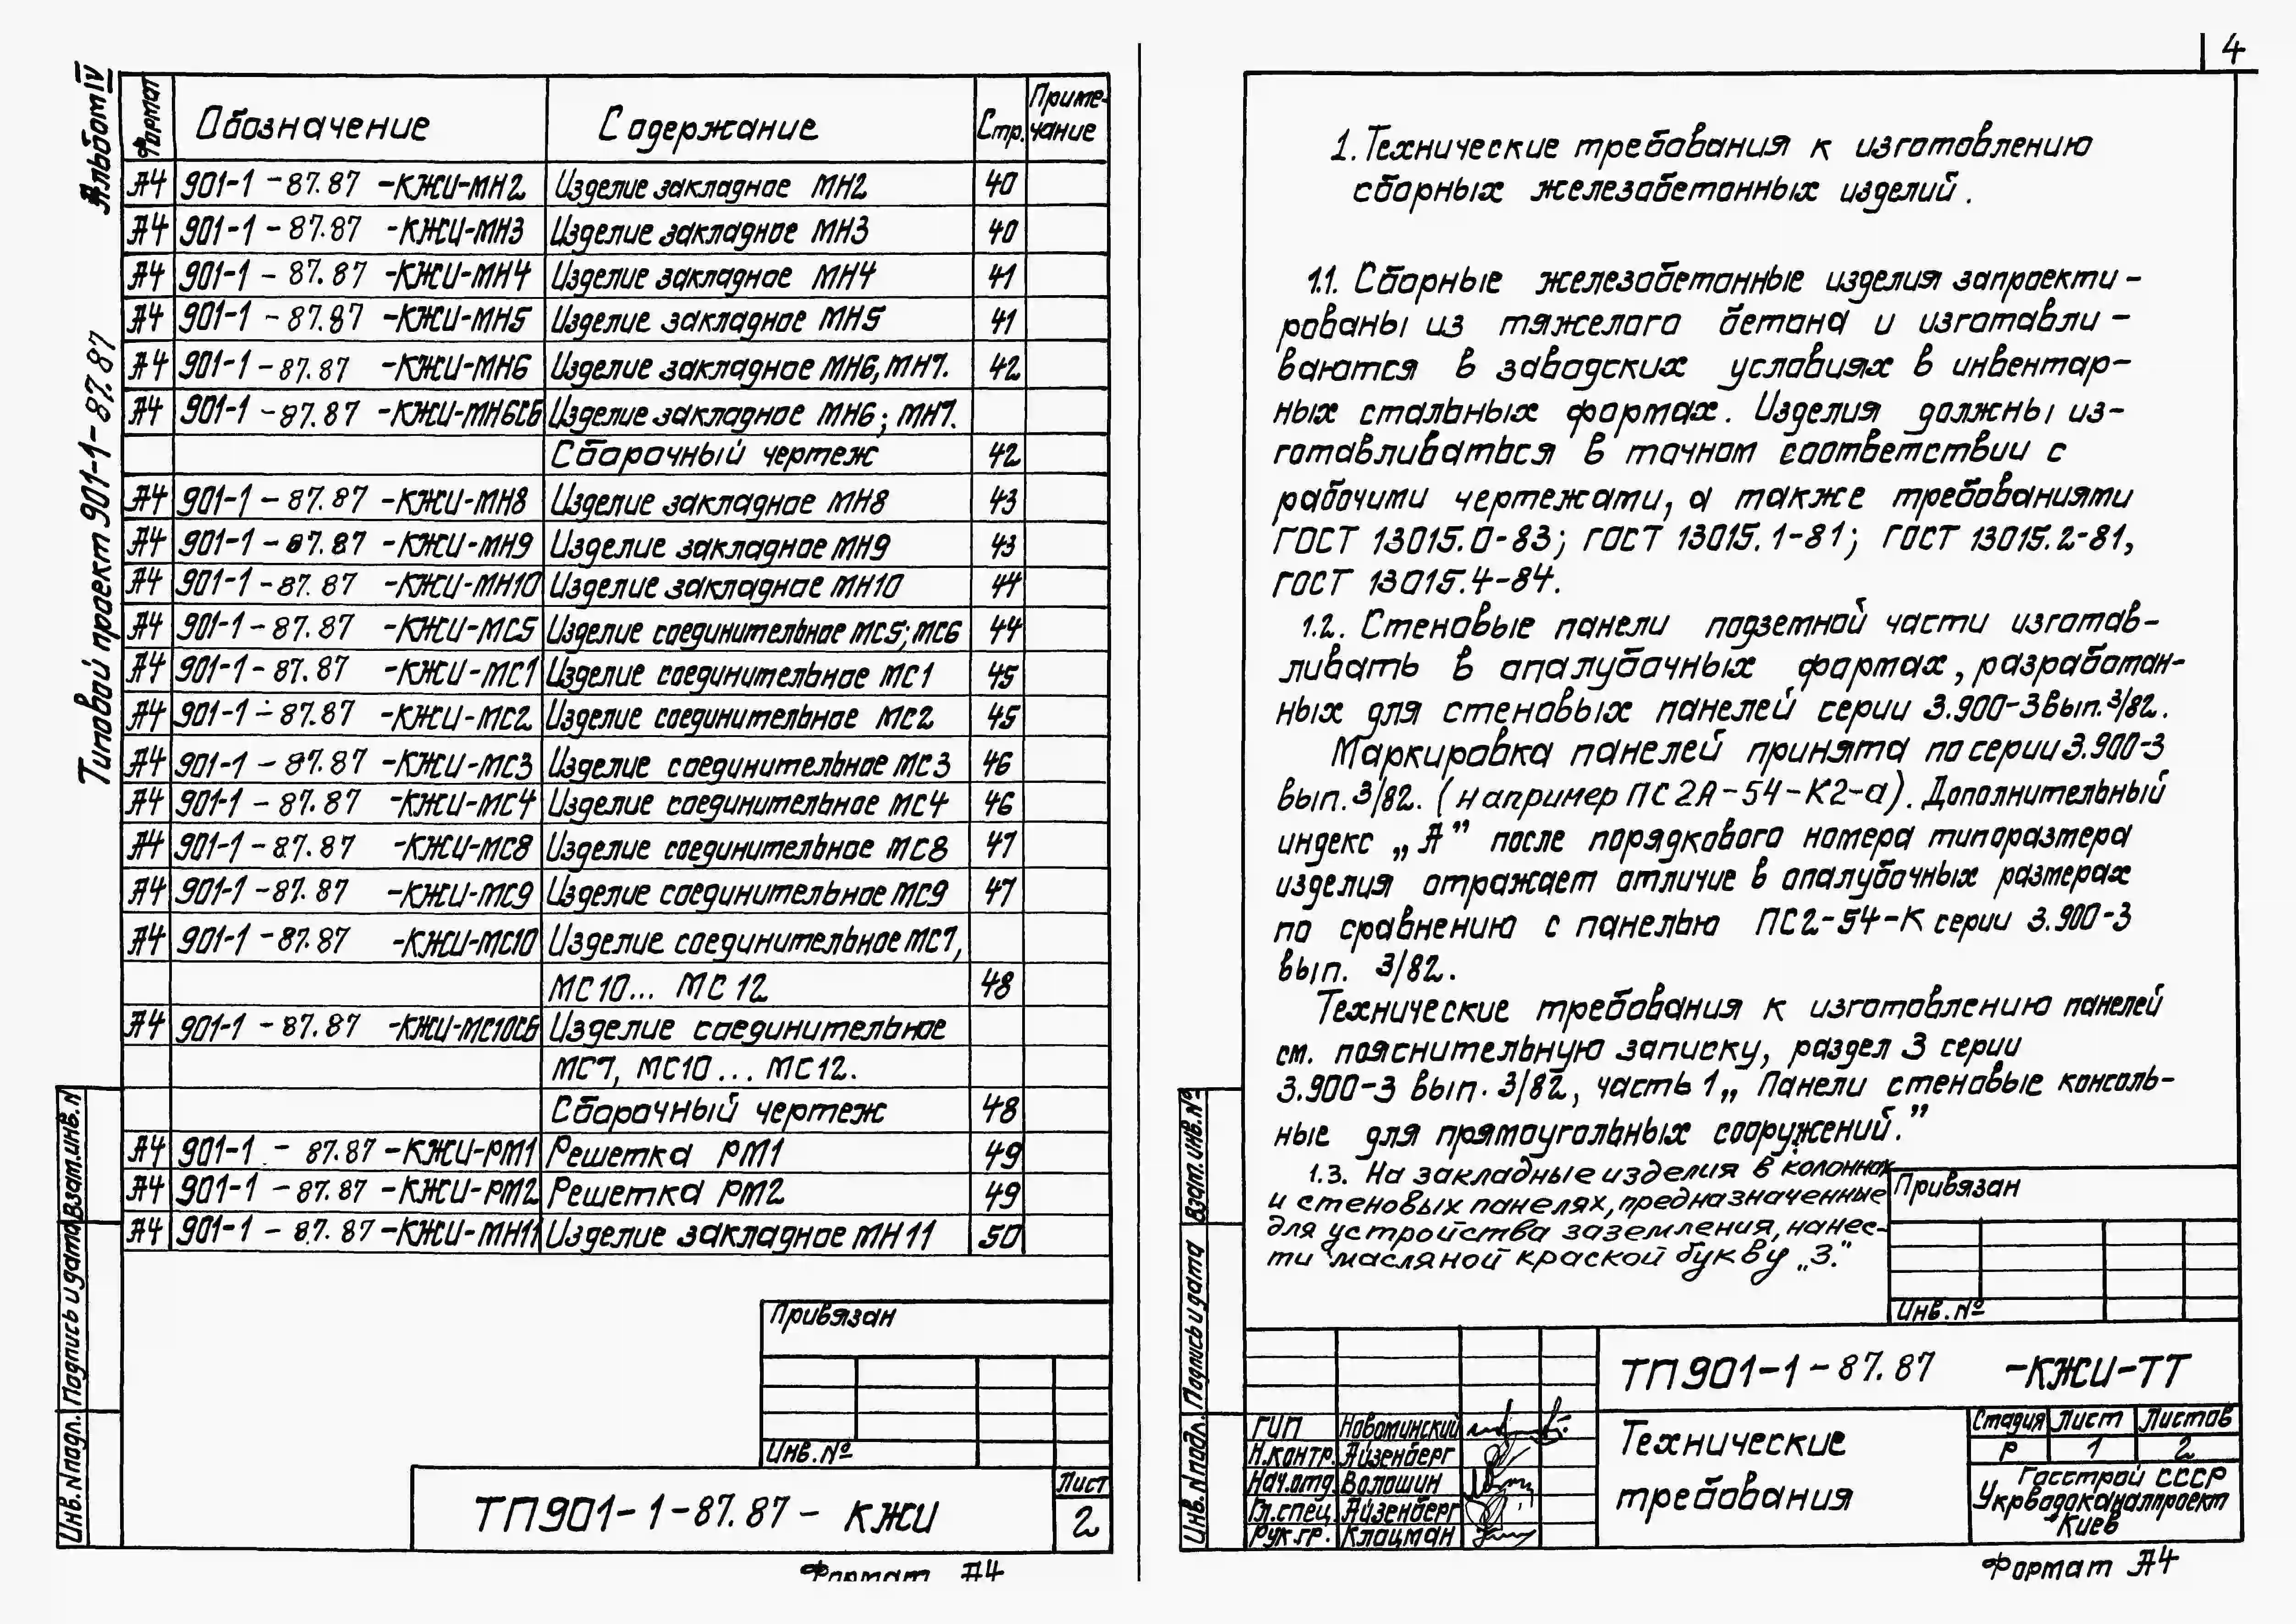 Альбом IV
Типовой проект 901-1-87.87
Формат Обозначение Содержание Стр. Приме-
чание
А4 901-1-87.87 -КЖИ-МН2 Изделие закладное МН2 40
А4 901-1-87.87 -КЖИ-МН3 Изделие закладное МН3 40
А4 901-1-87.87 -КЖИ-МН4 Изделие закладное МН4 41
А4 901-1-87.87 -КЖИ-МН5 Изделие закладное МН5 41
А4 901-1-87.87 -КЖИ-МН6 Изделие закладное МН6, МН7. 42
А4 901-1-87.87 -КЖИ-МН6СБ Изделие закладное МН6; МН7.
Сборочный чертеж 42
А4 901-1-87.87 -КЖИ-МН8 Изделие закладное МН8 43
А4 901-1-87.87 -КЖИ-МН9 Изделие закладное МН9 43
А4 901-1-87.87 -КЖИ-МН10 Изделие закладное МН10 44
А4 901-1-87.87 -КЖИ-МС5 Изделие соединительное МС5; МС6 44
А4 901-1-87.87 -КЖИ-МС1 Изделие соединительное МС1 45
А4 901-1-87.87 -КЖИ-МС2 Изделие соединительное МС2 45
А4 901-1-87.87 -КЖИ-МС3 Изделие соединительное МС3 46
А4 901-1-87.87 -КЖИ-МС4 Изделие соединительное МС4 46
А4 901-1-87.87 -КЖИ-МС8 Изделие соединительное МС8 47
А4 901-1-87.87 -КЖИ-МС9 Изделие соединительное МС9 47
А4 901-1-87.87 -КЖИ-МС10 Изделие соединительное МС7,
МС10... МС12 48
А4 901-1-87.87 -КЖИ-МС10СБ Изделие соединительное
МС7, МС10... МС12.
Сборочный чертеж 48
А4 901-1-87.87-КЖИ-РМ1 Решетка РМ1 49
А4 901-1-87.87-КЖИ-РМ2 Решетка РМ2 49
А4 901-1-87.87-КЖИ-МН11 Изделие закладное МН11 50
Взам.инв.N
Подпись и дата
Инв.N подл.
Привязан
Инв.№
ТП901-1-87.87- КЖИ
Лист
2
Формат А4
4
1. Технические требования к изготовлению
сборных железобетонных изделий.
1.1. Сборные железобетонные изделия запроекти-
рованы из тяжелого бетона и изготавли-
ваются в заводских условиях в инвентар-
ных стальных формах. Изделия должны из-
готавливаться в точном соответствии с
рабочими чертежами, а также требованиями
ГОСТ 13015.0-83; ГОСТ 13015.1-81; ГОСТ 13015.2-81,
ГОСТ 13015.4-84.
1.2. Стеновые панели подземной части изготав-
ливать в опалубочных формах, разработан-
ных для стеновых панелей серии 3.900-3 вып. 3/82.
Маркировка панелей принята по серии 3.900-3
вып. 3/82. (например ПС2А-54-К2-а). Дополнительный
индекс „А” после порядкового номера типоразмера
изделия отражает отличие в опалубочных размерах
по сравнению с панелью ПС2-54-К серии 3.900-3
вып. 3/82.
Технические требования к изготовлению панелей
см. пояснительную записку, раздел 3 серии
3.900-3 вып. 3/82, часть 1 „ Панели стеновые консоль-
ные для прямоугольных сооружений.”
1.3. На закладные изделия в колоннах
и стеновых панелях, предназначенные
для устройства заземления, нанес-
ти масляной краской букву „З.”
Взам.инв.№
Подпись и дата
Инв.N подл.
Привязан
Инв.№
ТП901-1-87.87 -КЖИ-ТТ
ГИП Новоминский
Н.контр. Айзенберг
Нач.отд. Волошин
Гл.спец. Айзенберг
Рук.гр. Клацман
Технические
требования
Стадия Лист Листов
Р 1 2
Госстрой СССР
Укрводоканалпроект
Киев
Формат А4